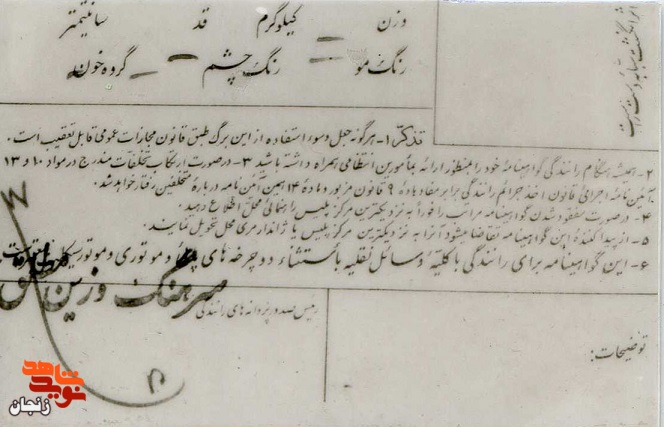 وزن کیلوگرم قد سانتیمتر
رنگ مو رنگ چشم گروه خون
اثر انگشت سبابه دست راست
تذکر ۱- هرگونه جعل و سوء استفاده از این برگ طبق قانون مجازات عمومی قابل تعقیب است.
۲- همیشه هنگام رانندگی گواهینامه خود را بمنظور ارائه بمأمورین انتظامی همراه داشته باشید ۳- در صورت ارتکاب تخلفات مندرج در مواد ۱۰ و ۱۳
آئین نامه اجرائی قانون اخذ جرائم رانندگی برابر مفاد ماده ۹ قانون مزبور و ماده ۱۴ همین آئین نامه درباره متخلفین رفتار خواهد شد.
۴- در صورت مفقود شدن گواهینامه مراتب را فوراً به نزدیکترین مرکز پلیس راهنمائی محل اطلاع دهید.
۵- از پیدا کننده این گواهینامه تقاضا میشود آنرا به نزدیکترین مرکز پلیس یا ژاندارمری محل تحویل نمایند.
۶- این گواهینامه برای رانندگی با کلیه وسائل نقلیه باستثناء دو چرخه های پائی و موتوری و موتور سیکلت
رئیس صدور پروانه های رانندگی
سرهنگ وزین
توضیحات:
شاهد
نوید
زنجان